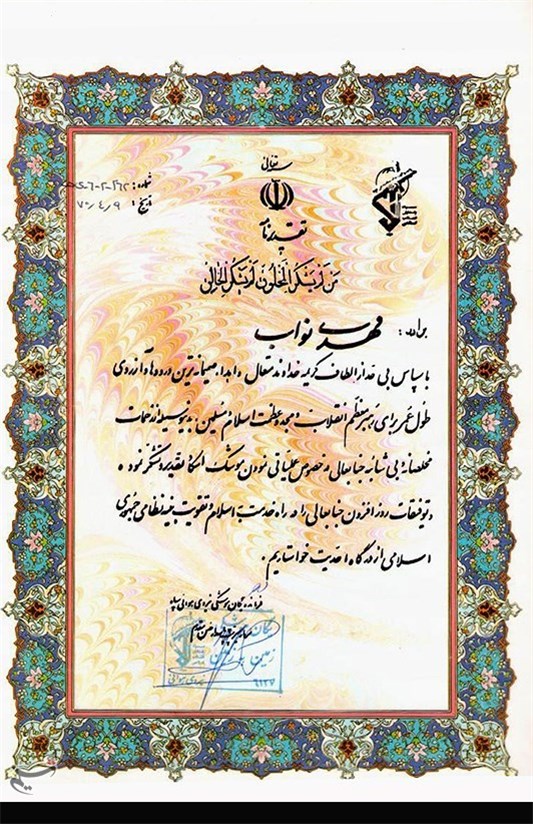 بسمه تعالی
شماره:
تاریخ: ۷۰/۴/۹
تقدیرنامه
من لم یشکر المخلوق لم یشکر الخالق
برادر: مهدی نواب
با سپاس بی حد از الطاف کریمه خداوند متعال و اهداء صمیمانه‌ترین درودها و آرزوی
طول عمر برای رهبر معظم انقلاب و مجد و عظمت اسلام و مسلمین بدینوسیله از زحمات
مخلصانه و بی شائبه جنابعالی در خصوص عملیاتی نمودن موشک اسکاد تقدیر و تشکر نموده
و توفیقات روز افزون جنابعالی را در راه خدمت به اسلام و تقویت بنیه نظامی جمهوری
اسلامی از درگاه احدیت خواستاریم.
فرمانده یگان موشکی نیروی هوائی سپاه
یگان موشکی
زمین به زمین
نیروی هوائی
تسنیم